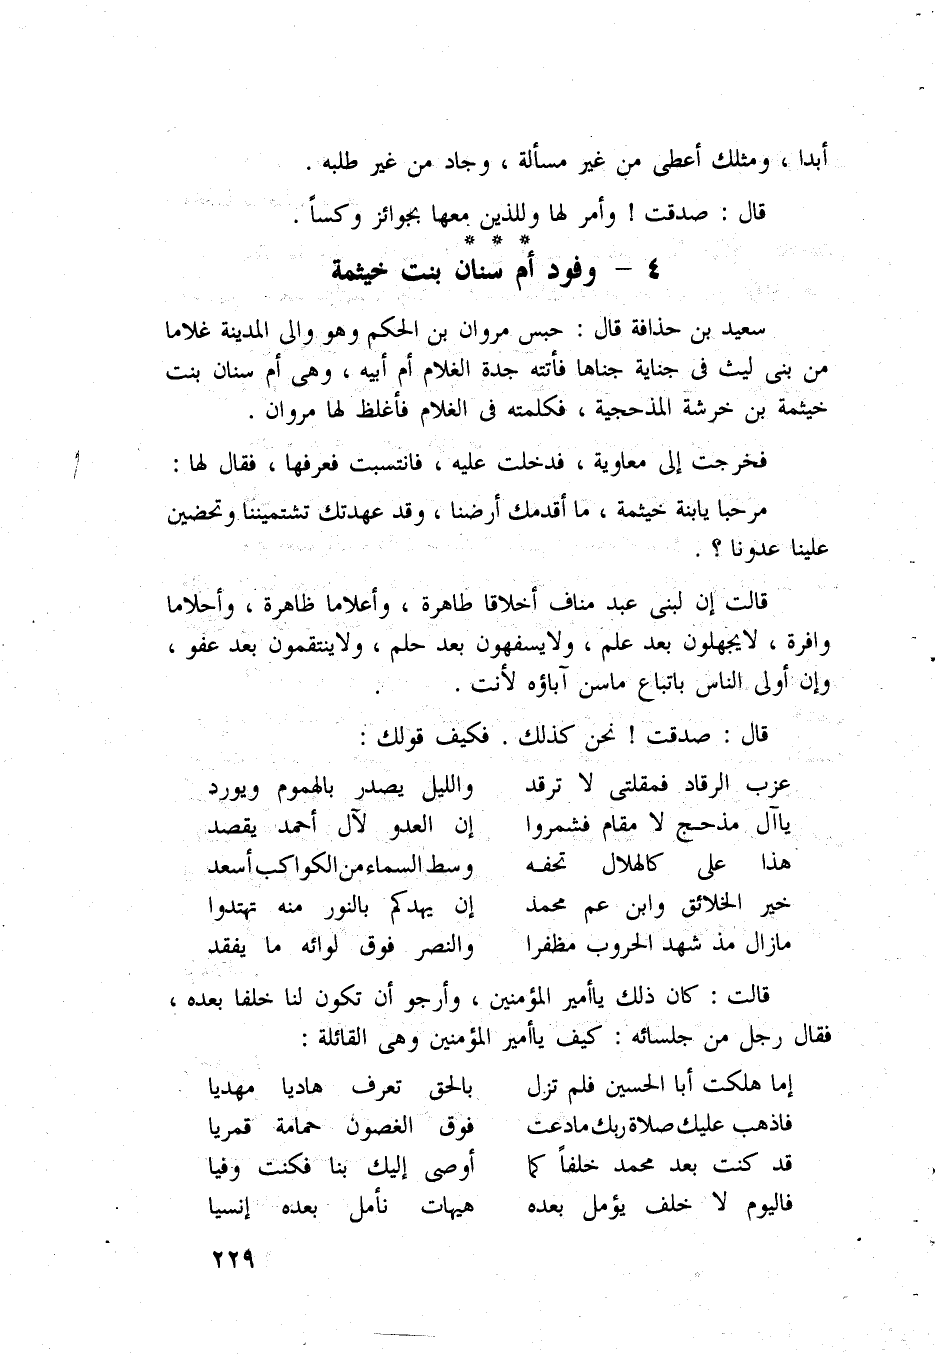 أبدا ، ومثلك أعطى من غير مسألة ، وجاد من غير طلبه .
قال : صدقت ! وأمر لها وللذين معها بجوائز وكسأً .
* * *
٤ – وفود أم سنان بنت خيثمة
سعيد بن حذافة قال : حبس مروان بن الحكم وهو والى المدينة غلاما
من بنى ليث فى جناية جناها فأتته جدة الغلام أم أبيه ، وهى أم سنان بنت
خيثمة بن خرشة المذحجية ، فكلمته فى الغلام فأغلظ لها مروان .
فخرجت إلى معاوية ، فدخلت عليه ، فانتسبت فعرفها ، فقال لها :
مرحبا يابنة خيثمة ، ما أقدمك أرضنا ، وقد عهدتك تشتميننا وتحضين
علينا عدونا ؟ .
قالت إن لبنى عبد مناف أخلاقا طاهرة ، وأعلاما ظاهرة ، وأحلاما
وافرة ، لايجهلون بعد علم ، ولايسفهون بعد حلم ، ولاينتقمون بعد عفو ،
وإن أولى الناس باتباع ماسن آباؤه لأنت .
قال : صدقت ! نحن كذلك . فكيف قولك :
عزب الرقاد فمقلتى لا ترقد والليل يصدر بالهموم ويورد
ياآل مذحج لا مقام فشمروا إن العدو لآل أحمد يقصد
هذا على كالهلال تحفه وسط السماء من الكواكب أسعد
خير الخلائق وابن عم محمد إن يهدكم بالنور منه تهتدوا
مازال مذ شهد الحروب مظفرا والنصر فوق لوائه ما يفقد
قالت : كان ذلك ياأمير المؤمنين ، وأرجو أن تكون لنا خلفا بعده ،
فقال رجل من جلسائه : كيف ياأمير المؤمنين وهى القائلة :
إما هلكت أبا الحسين فلم تزل بالحق تعرف هاديا مهديا
فاذهب عليك صلاة ربك مادعت فوق الغصون حمامة قمريا
قد كنت بعد محمد خلفاً كما أوصى إليك بنا فكنت وفيا
فاليوم لا خلف يؤمل بعده هيهات نأمل بعده إنسيا
٢٢٩